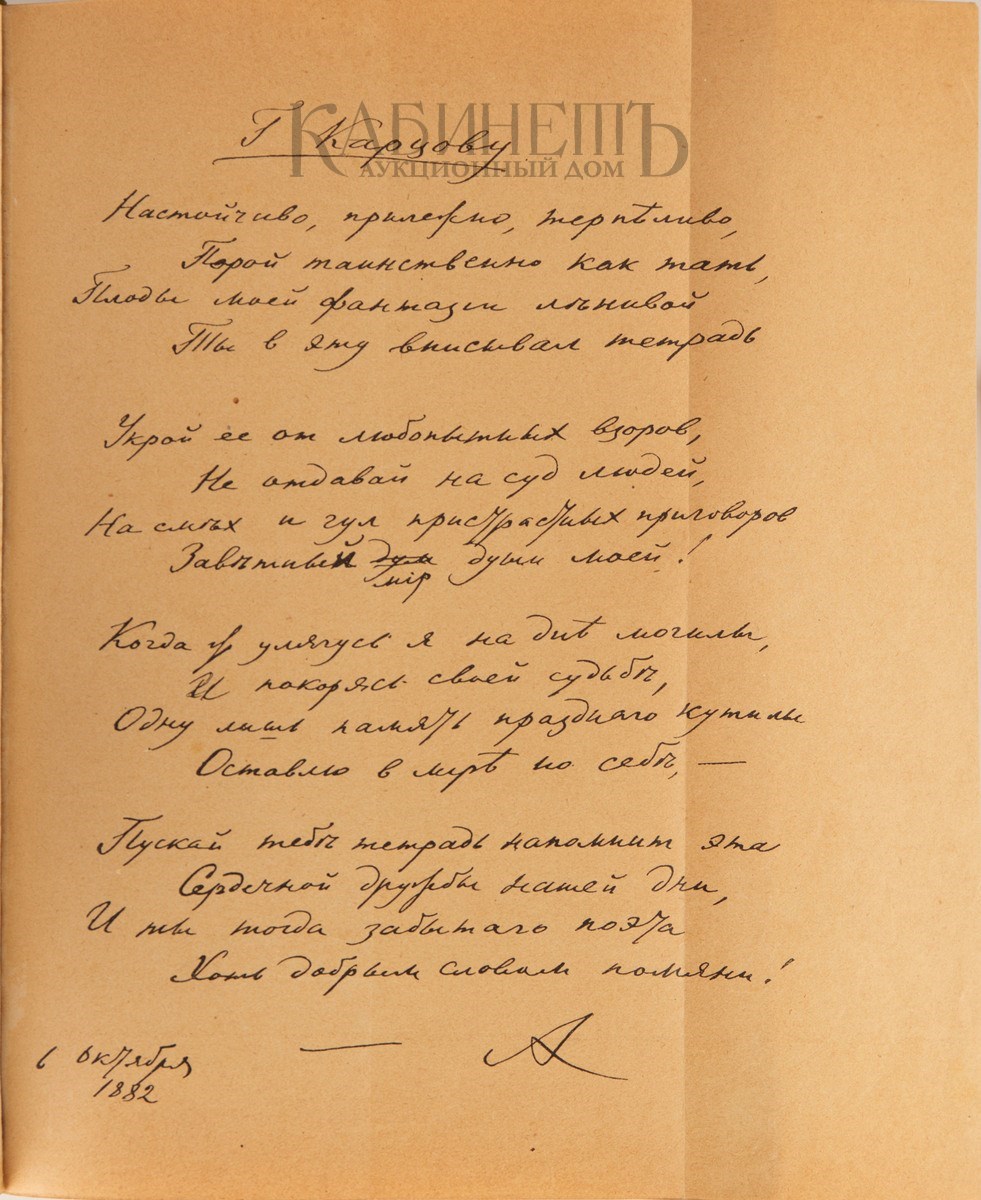 КАБИНЕТЪ
АУКЦИОННЫЙ ДОМ
Г Карцову
Настойчиво, прилежно, терпѣливо,
Порой таинственно как тать,
Плоды моей фантазіи лѣнивой
Ты в эту вписывал тетрадь
Укрой ее от любопытных взоров,
Не отдавай на суд людей,
На смѣх и гул пристрастных приговоров
Завѣтный дум души моей!
мір
Когда ж улягусь я на днѣ могилы,
И покорясь своей судьбѣ,
Одну лишь память праздного кутилы
Оставлю в мірѣ по себѣ, —
Пускай тебѣ тетрадь напомнит эта
Сердечной дружбы нашей дни,
И ты тогда забытаго поэта
Хоть добрым словом помяни!
— А
6 октября
1882